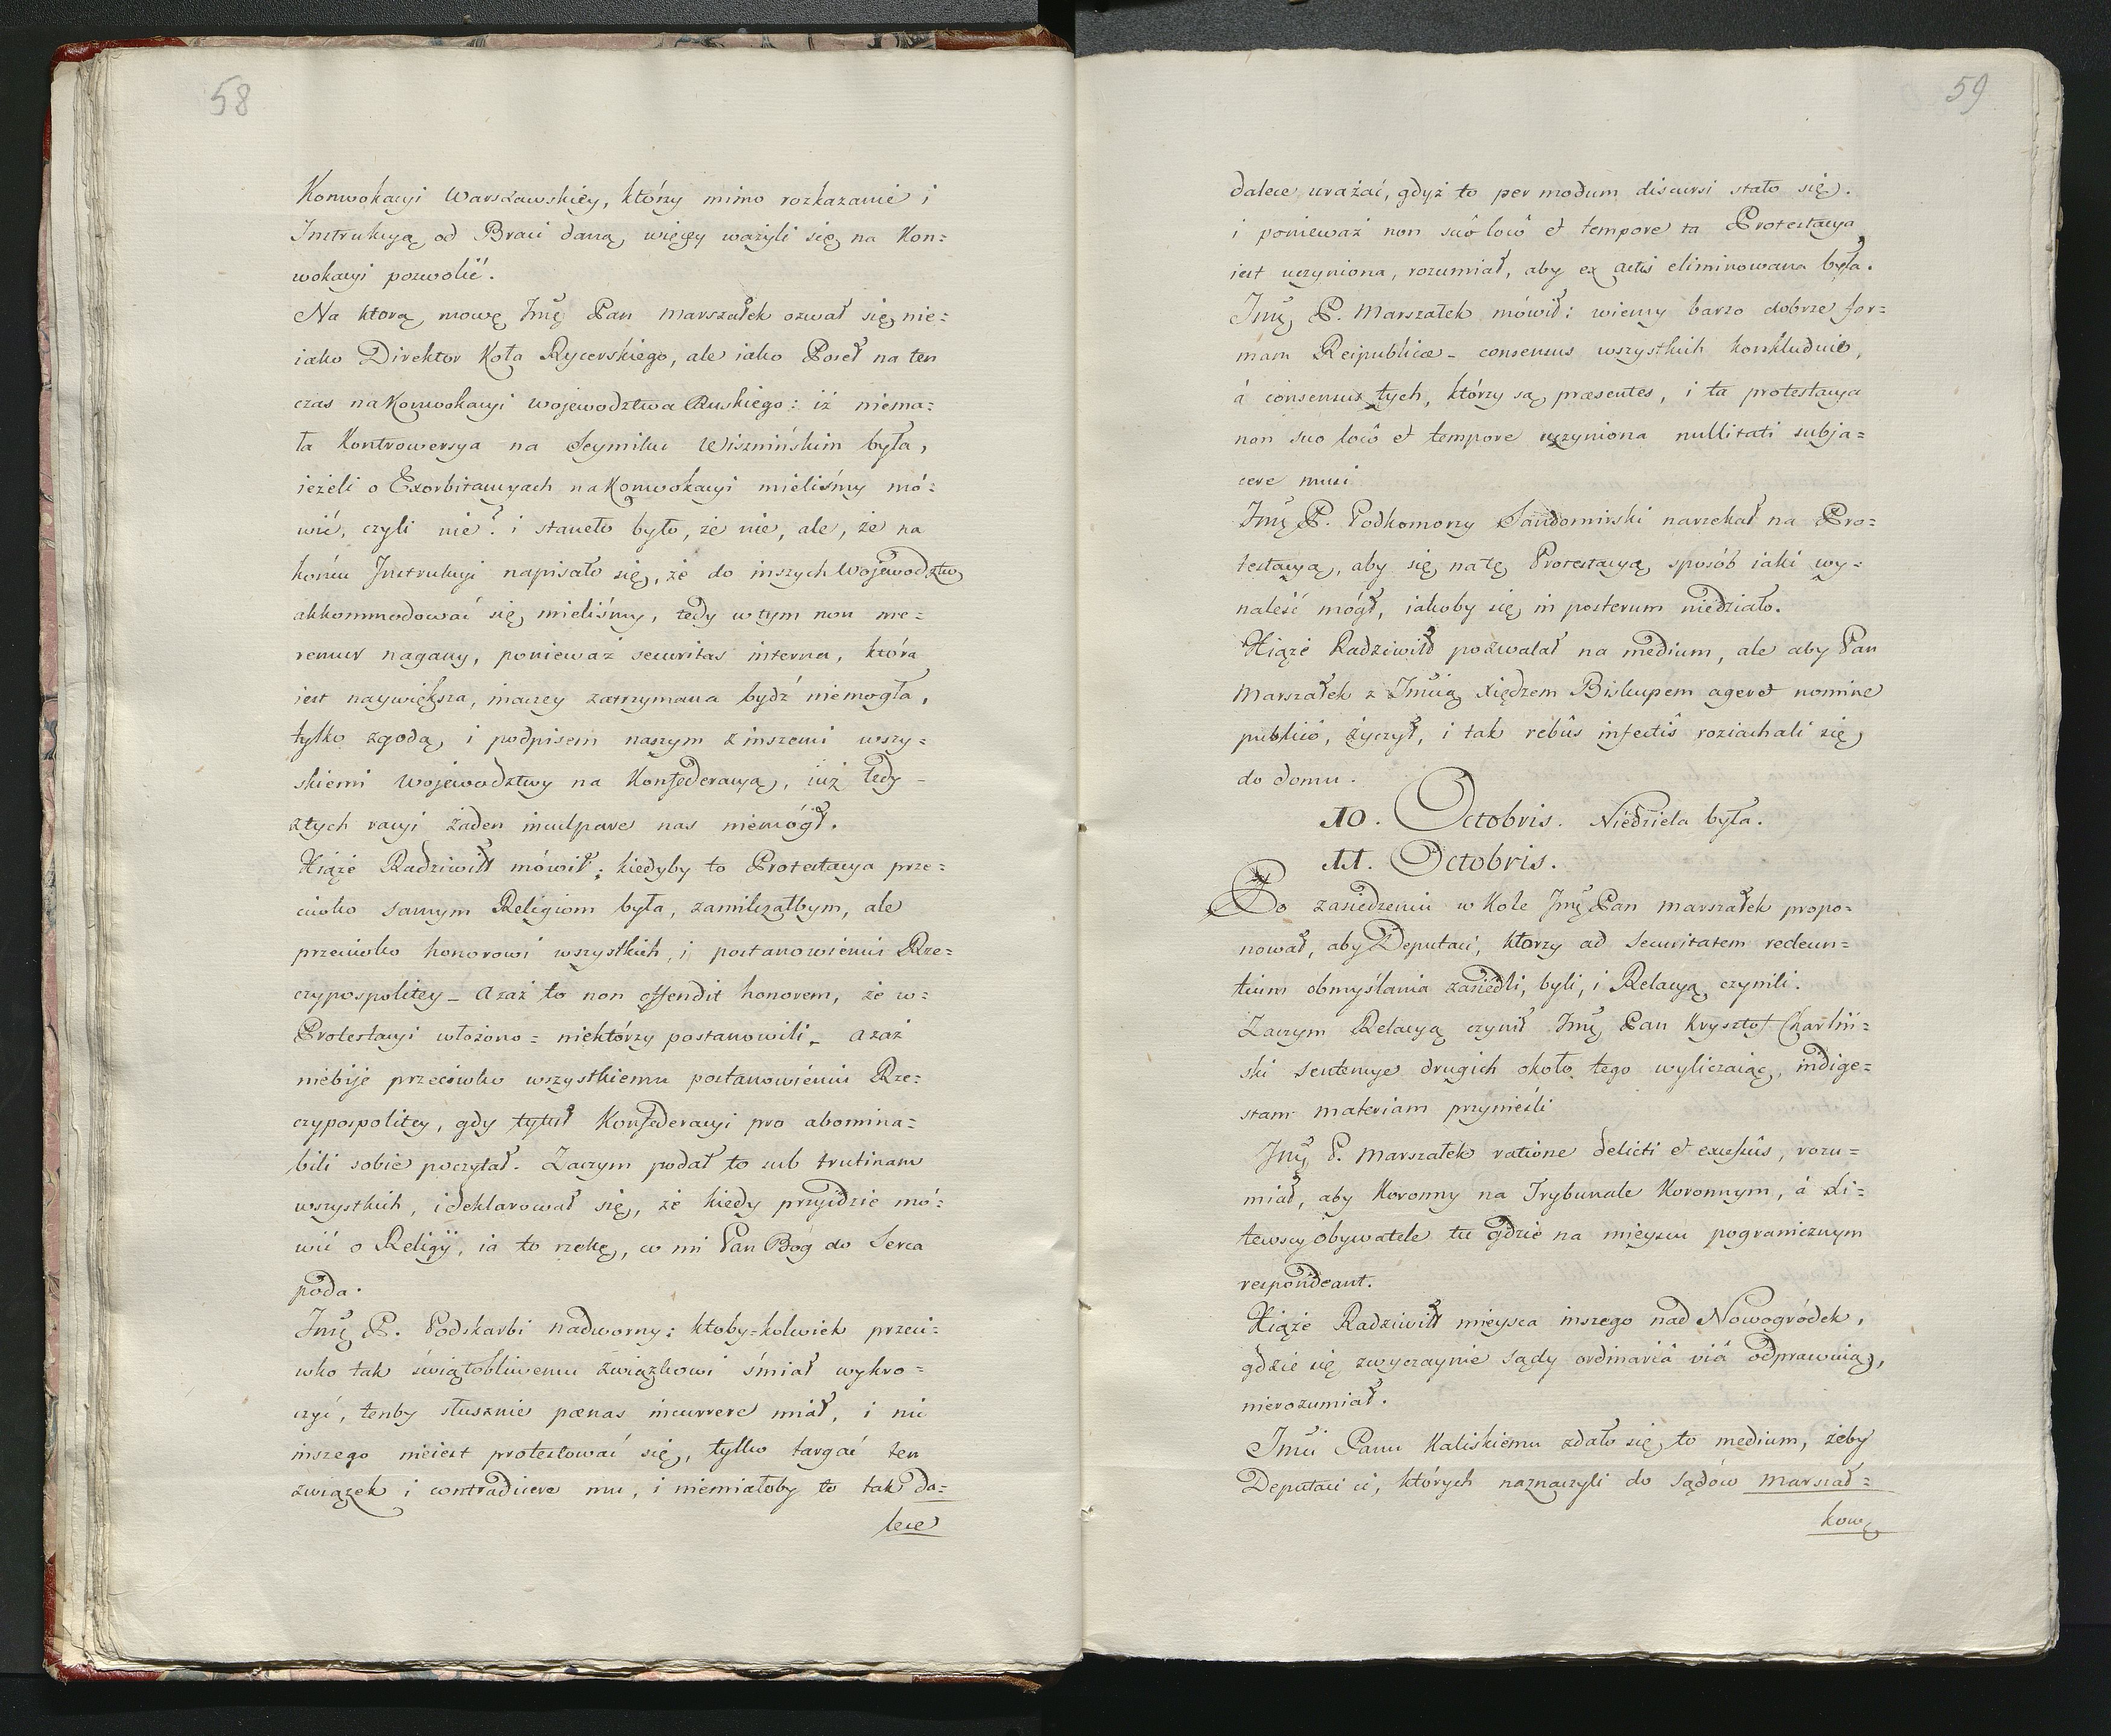 58
Konwokacyi Warszawskiey, którzy mimo rozkazanie i
Instrukcyą od Braci daną, więcey ważyli się na Kon=
wokacyi pozwolić.
Na którą mowę Jmę Pan Marszałek ozwał się nie=
iako Direktor Koła Rycerskiego, ale iako Poseł na ten
czas na Konwokacyi Województwa Ruskiego: iż niema=
ła Kontrowersya na Seymiku Wisznińskim była,
ieżeli o Exorbitancyach na Konwokacyi mieliśmy mó=
wić, czyli nie? i staneło było, że nie, ale, że na
końcu Instrukcyi napisało się, że do inszych Województw
akkommodować się mieliśmy, tedy w tym non me=
remur nagany, ponieważ securitas interna, która
iest naywiększa, inaczey zatrzymana bydź niemogła,
tylko zgodą, i podpisem naszym z inszemi wszy=
skiemi Województwy na Konfederacyą, iuż tedy -
z tych racyi żaden inculpare nas niemógł.
Xiąże Radziwiłł mówił; kiedyby to Protestacya prze=
ciwko samym Religiom była, zamilczałbym, ale
przeciwko honorowi wszystkich, i postanowieniu Rze=
czypospolitey - azaż to non offendit honorem, że w=
Protestacyi włożono = niektórzy postanowili - azaż
niebije przeciwko wszystkiemu postanowieniu Rze=
czypospolitey, gdy tytuł Konfederacyi pro abomina=
bili sobie poczytał. Zaczym podał to sub trutinam
wszystkich, i deklarował się, że kiedy przyidzie mó=
wić o Religÿ, ia to rzekę, co mi Pan Bóg do Serca
poda.
Jmę P. Podskarbi nadworny; ktoby=kolwiek przeci=
wko tak świątobliwemu związkowi śmiał wykro=
czyć, tenby słusznie pœnas incurrere miał, i nic
inszego nieiest protestować się, tylko targać ten
związek i contradicere mu, i niemiałoby to tak da=
lece
59
dalece urażać, gdyż to per modum discursi stało się.
i ponieważ non suô locô et tempore ta Protestacya
iest uczyniona, rozumiał, aby ex actis eliminowana była.
Jmę P. Marszałek mówił: wiemy barzo dobrze for=
mam Reipublicæ - consensus wszystkich konkluduie,
á consensus tych, którzy są præsentes, i ta protestacya
non suo locô et tempore uczyniona nullitati subja=
cere musi
Jmę P. Podkomorzy Sandomirski narzekał na Pro=
testacyą, aby się na tę Protestacyą sposób iaki wy=
naleść mógł, iakoby się in posterum niedziało.
Xiąże Radziwiłł pozwalał na medium, ale aby Pan
Marszałek z Jmcią Xiędzem Biskupem ageret nomine
publicô, życzył, i tak rebûs infectîs roziachali się
do domu.
10. Octobris. Niedziela była.
11. Octobris.
Po zasiedzeniu w Kole Jmę Pan Marszałek propo=
nował, aby Deputaci, którzy ad Securitatem redeun=
tium obmyślania zasiedli, byli, i Relacyą czynili.
Zaczym Relacyą czynił Jmę Pan Krysztof Charliń=
ski sentencye drugich około tego wyliczaiąc, indige=
stam materiam przynieśli
Jmę P. Marszałek ratione delicti et excessûs, rozu=
miał, aby Koronny na Trybunale Koronnym, á Li=
tewscy obywatele tu gdzie na mieyscu pogranicznym
respondeant.
Xiąże Radziwiłł mieysca inszego nad Nowogródek,
gdzie się zwyczaynie sądy ordinariâ viâ odprawuią,
nierozumiał.
Jmci Panu Kaliskiemu zdało się to medium, żeby
Deputaci ci, których naznaczyli do sądów Marszał=
kow